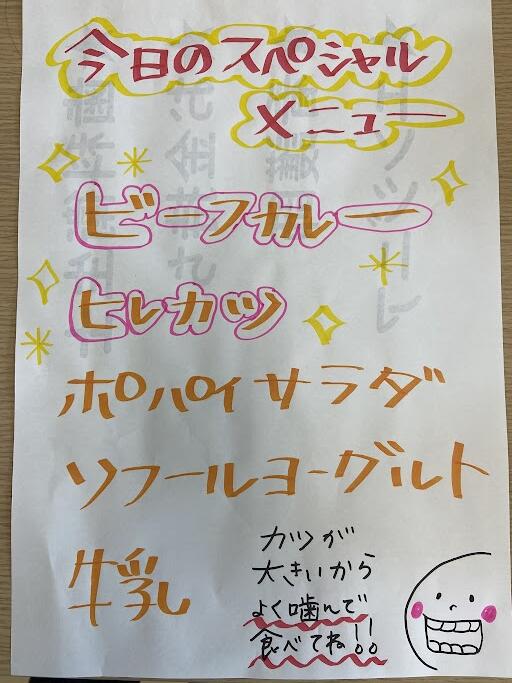 今日のスペシャル
メニュー
ビーフカレー
ヒレカツ
ポパイサラダ
ソフールヨーグルト
牛乳
カツが
大きいから
よく噛んで
食べてね!!